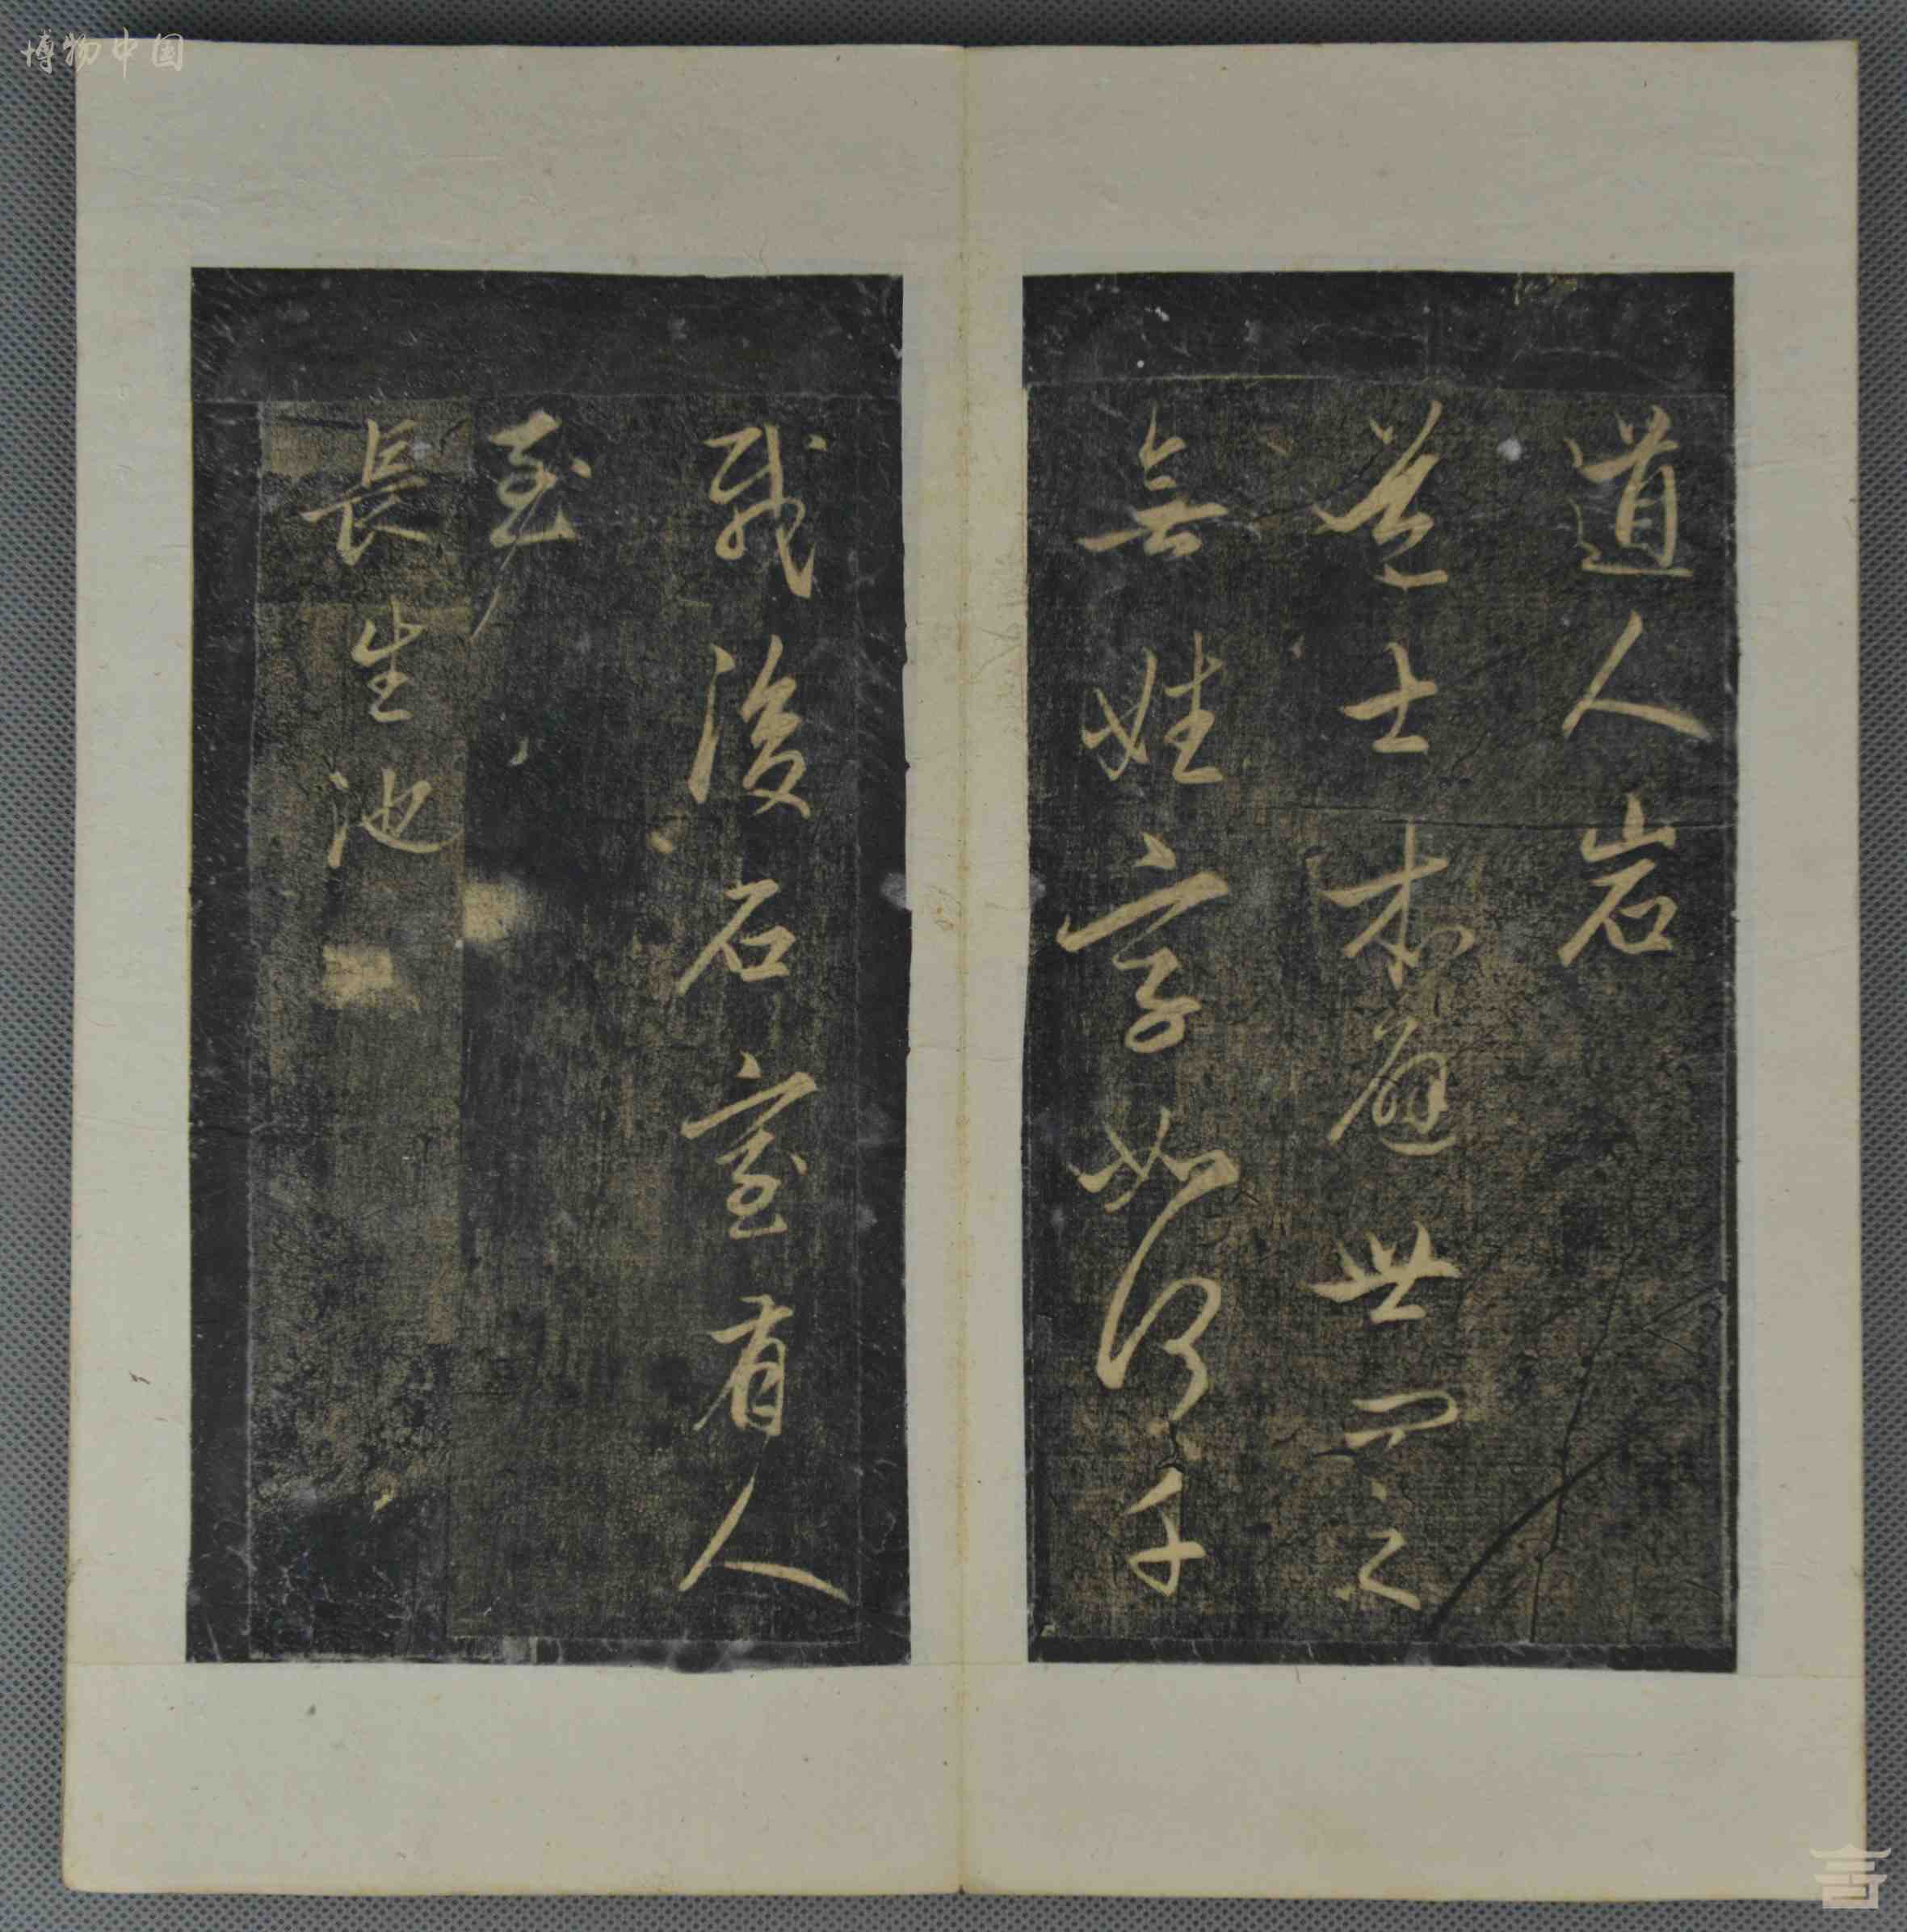 博物中国
道人岩
道士本避世問之
無姓字如何千
載後石室有人
至
長生池